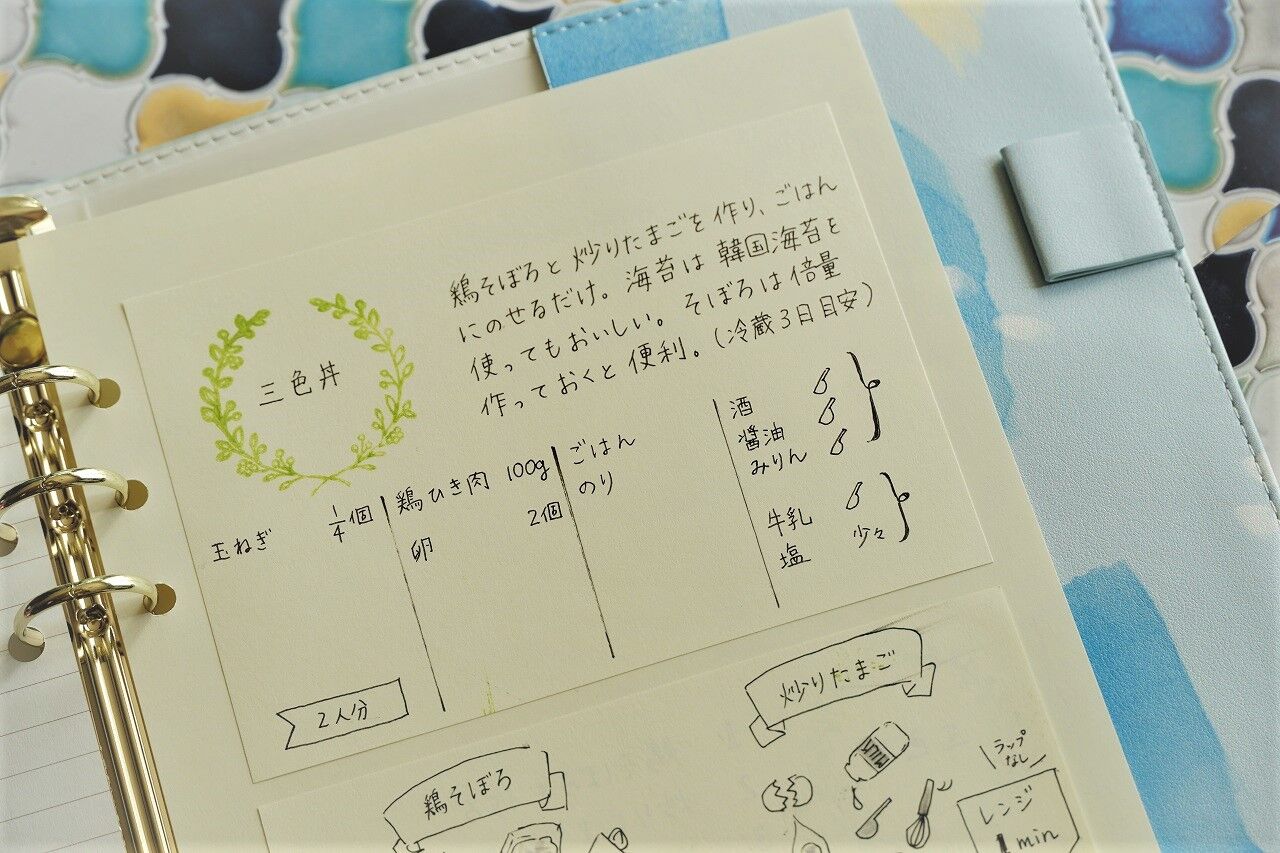 三色丼
鶏そぼろと炒りたまごを作り、ごはん
にのせるだけ。海苔は韓国海苔を
使ってもおいしい。そぼろは倍量
作っておくと便利。(冷蔵3日目安)
玉ねぎ 1/4個
鶏ひき肉 100g
卵 2個
ごはん
のり
酒
醤油
みりん
牛乳
塩 少々
2人分
鶏そぼろ
炒りたまご
MILK
ラップ
なし
レンジ
1min